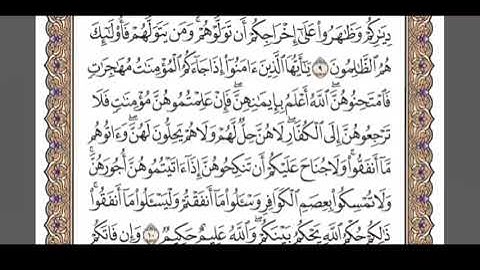 دِيَٰرِكُمْ وَظَٰهَرُوا۟ عَلَىٰٓ إِخْرَاجِكُمْ أَن تَوَلَّوْهُمْ ۚ وَمَن يَتَوَلَّهُمْ فَأُو۟لَٰٓئِكَ
هُمُ ٱلظَّٰلِمُونَ ٩ يَٰٓأَيُّهَا ٱلَّذِينَ ءَامَنُوٓا۟ إِذَا جَآءَكُمُ ٱلْمُؤْمِنَٰتُ مُهَٰجِرَٰتٍ
فَٱمْتَحِنُوهُنَّ ۖ ٱللَّهُ أَعْلَمُ بِإِيمَٰنِهِنَّ ۖ فَإِنْ عَلِمْتُمُوهُنَّ مُؤْمِنَٰتٍ فَلَا
تَرْجِعُوهُنَّ إِلَى ٱلْكُفَّارِ ۖ لَا هُنَّ حِلٌّ لَّهُمْ وَلَا هُمْ يَحِلُّونَ لَهُنَّ ۖ وَءَاتُوهُم
مَّآ أَنفَقُوا۟ ۚ وَلَا جُنَاحَ عَلَيْكُمْ أَن تَنكِحُوهُنَّ إِذَآ ءَاتَيْتُمُوهُنَّ أُجُورَهُنَّ ۚ
وَلَا تُمْسِكُوا۟ بِعِصَمِ ٱلْكَوَافِرِ وَسْـَٔلُوا۟ مَآ أَنفَقْتُمْ وَلْيَسْـَٔلُوا۟ مَآ أَنفَقُوا۟ ۚ
ذَٰلِكُمْ حُكْمُ ٱللَّهِ ۖ يَحْكُمُ بَيْنَكُمْ ۚ وَٱللَّهُ عَلِيمٌ حَكِيمٌ ١٠ وَإِن فَاتَكُمْ